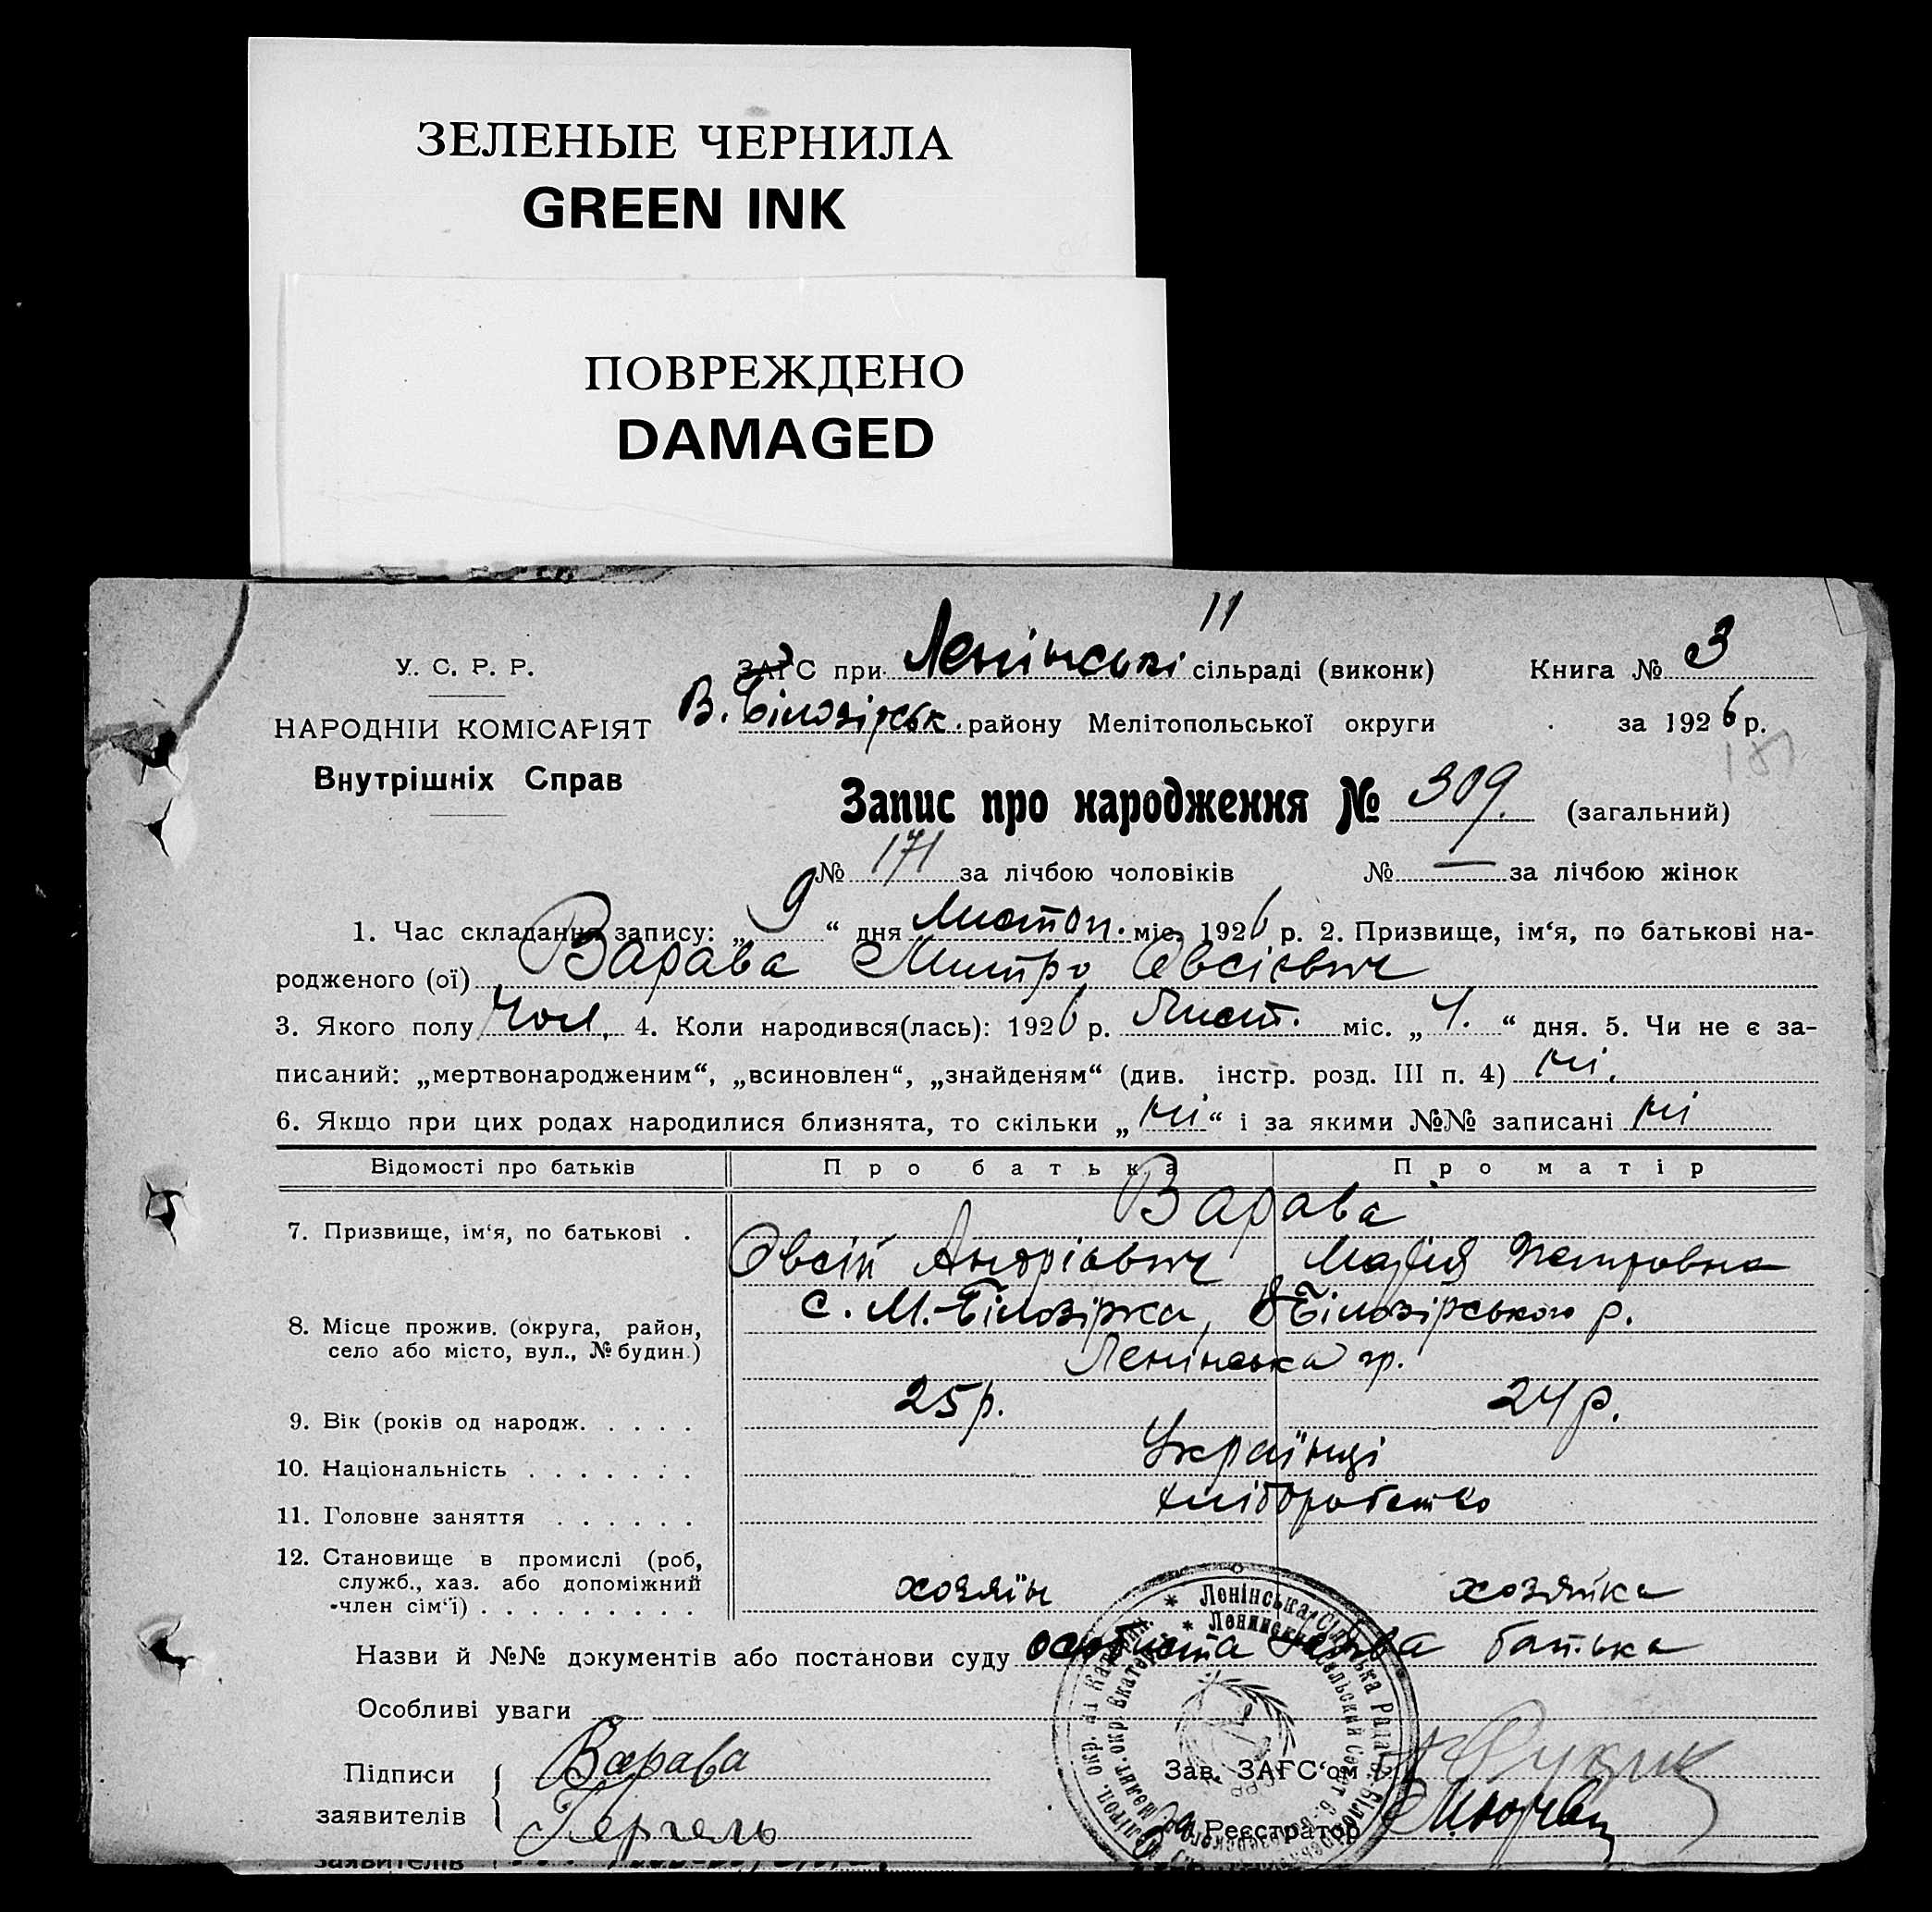 ЗЕЛЕНЫЕ ЧЕРНИЛА
GREEN INK
ПОВРЕЖДЕНО
DAMAGED
11
У. С. Р. Р.
НАРОДНІЙ КОМІСАРІЯТ
Внутрішніх Справ
ЗАГС при Ленінські сільраді (виконк) Книга № 3
В. Білозірськ. району Мелітопольської округи за 1926 р.
Запис про народження № 309. (загальний)
№ 171 за лічбою чоловіків № — за лічбою жінок
1. Час складання запису: „9“ дня Листоп. міс. 1926 р. 2. Призвище, ім‘я, по батькові на-
родженого (ої) Варава Митро Овсієвич
3. Якого полу Чол, 4. Коли народився(лась): 1926 р. Лист. міс. „4.“ дня. 5. Чи не є за-
писаний: „мертвонародженим“, „всиновлен“, „знайденям“ (див. інстр. розд. III п. 4) ні.
6. Якщо при цих родах народилися близнята, то скільки „ні“ і за якими №№ записані ні
Відомості про батьків Про батька Про матір
7. Призвище, ім‘я, по батькові .
Варава
Овсій Андріович Марія Петровна
8. Місце прожив. (округа, район,
село або місто, вул., № будин.)
с. М.-Білозірка, Білозірського р.
Ленінська гр.
9. Вік (років од народж. . . . . 25 р. 24 р.
10. Національність . . . . . . . Українці
11. Головне заняття . . . . . . хліборобство
12. Становище в промислі (роб,
служб., хаз. або допоміжний
член сім‘ї) . . . . . . . . . хозяїн хозяйка
Назви й №№ документів або постанови суду особиста заява батька
Особливі уваги
Підписи
заявителів
Варава
Гергель
Зав. ЗАГС‘ом
За Реєстратор
Ленінська Сільська Рада Біло
Ленинский Сельский Совет
заявителів